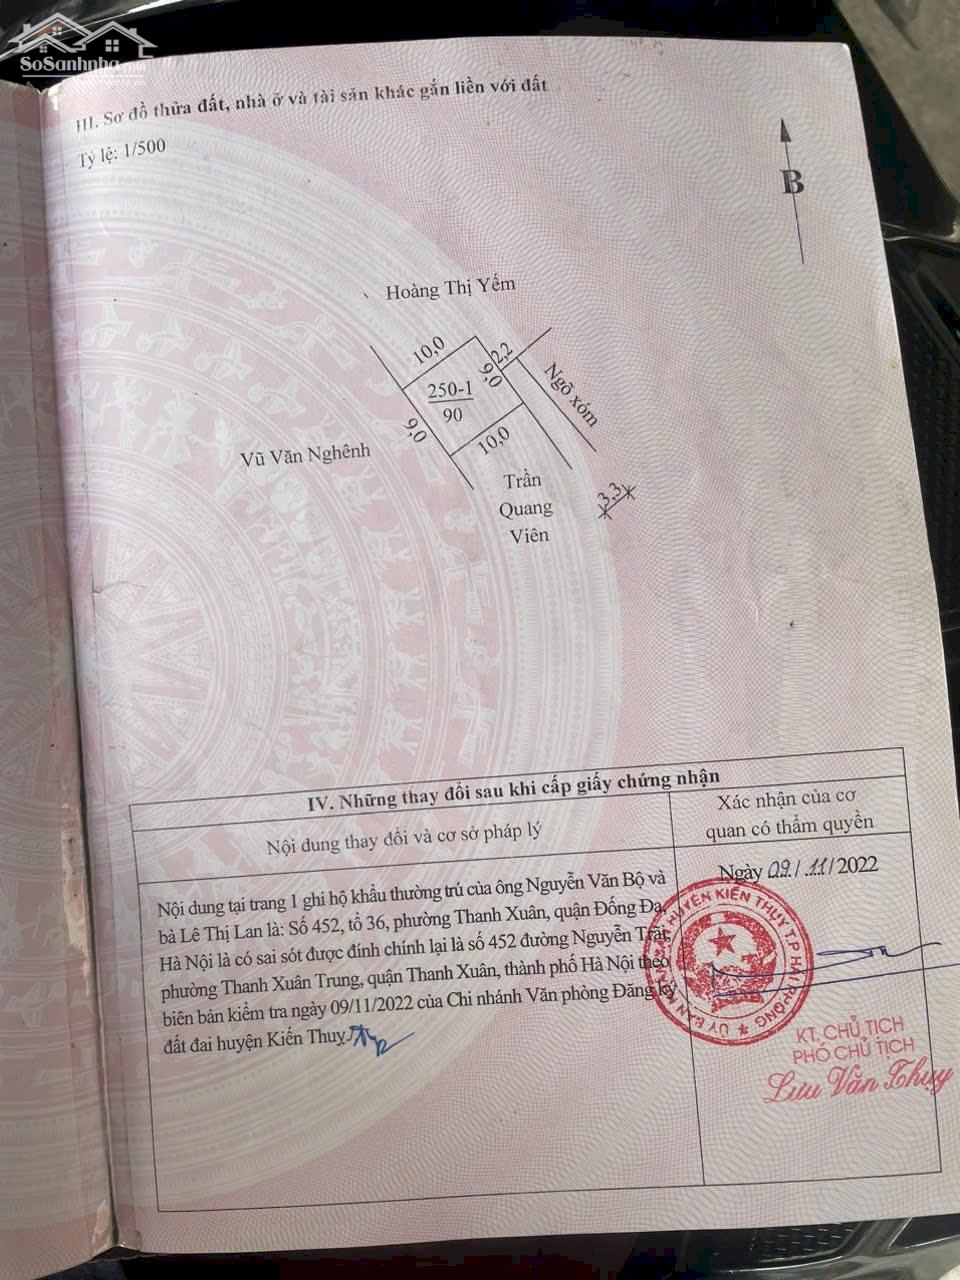 SoSanhnha
III. Sơ đồ thửa đất, nhà ở và tài sản khác gắn liền với đất
Tỷ lệ: 1/500
B
Hoàng Thị Yếm
10,0
2,2
9,0
250-1
90
Ngõ xóm
9,0
10,0
Vũ Văn Nghênh
Trần
Quang
Viên
3,3
IV. Những thay đổi sau khi cấp giấy chứng nhận
Nội dung thay đổi và cơ sở pháp lý
Xác nhận của cơ
quan có thẩm quyền
Nội dung tại trang 1 ghi hộ khẩu thường trú của ông Nguyễn Văn Bộ và
bà Lê Thị Lan là: Số 452, tổ 36, phường Thanh Xuân, quận Đống Đa,
Hà Nội là có sai sót được đính chính lại là số 452 đường Nguyễn Trãi,
phường Thanh Xuân Trung, quận Thanh Xuân, thành phố Hà Nội theo
biên bản kiểm tra ngày 09/11/2022 của Chi nhánh Văn phòng Đăng ký
đất đai huyện Kiến Thuỵ./.
Ngày 09./.11/2022
ỦY BAN HUYỆN KIẾN THỤY T.P HẢI PHÒNG
KT. CHỦ TỊCH
PHÓ CHỦ TỊCH
Lưu Văn Thụy